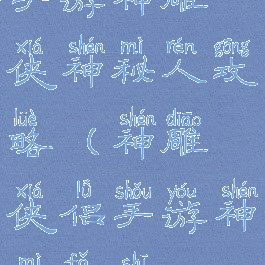 xiá shén mì rén gōng
侠神秘人攻
lüè shén diāo
略（神雕
xiá lǚ shǒu yóu shén
侠侣手游神